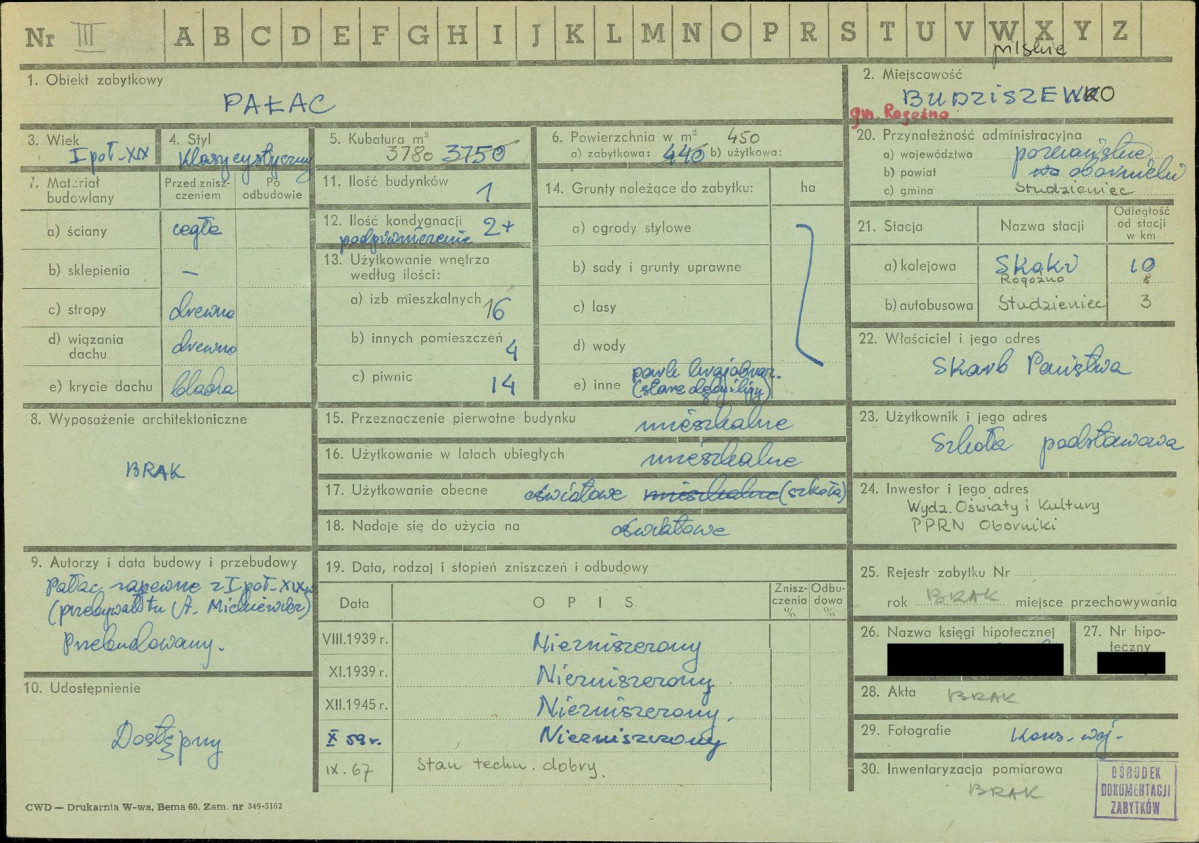 Nr III A B C D E F G H I J K L M N O P R S T U V W X Y Z
pilskie
1. Obiekt zabytkowy
PAŁAC
2. Miejscowość
BUDZISZEWKO
gm. Rogoźno
3. Wiek
I poł. XIX
4. Styl
Klasycystyczny
5. Kubatura m³
3780 3750
6. Powierzchnia w m² 450
a) zabytkowa: 440 b) użytkowa:
20. Przynależność administracyjna
a) województwo poznańskie
b) powiat oborniki
c) gmina Studzieniec
7. Materiał budowlany
Przed zniszczeniem
Po odbudowie
a) ściany cegła
b) sklepienia —
c) stropy drewno
d) wiązania dachu drewno
e) krycie dachu blacha
11. Ilość budynków 1
12. Ilość kondygnacji 2+
podpiwniczenie
13. Użytkowanie wnętrza
według ilości:
a) izb mieszkalnych 16
b) innych pomieszczeń 4
c) piwnic 14
14. Grunty należące do zabytku: ha
a) ogrody stylowe
b) sady i grunty uprawne
c) lasy
d) wody
e) inne park krajobraz.
(stare dęby i lipy)
21. Stacja Nazwa stacji Odległość od stacji w km
a) kolejowa SKOKI 10
Rogoźno 8
b) autobusowa Studzieniec 3
22. Właściciel i jego adres
Skarb Państwa
8. Wyposażenie architektoniczne
BRAK
15. Przeznaczenie pierwotne budynku mieszkalne
16. Użytkowanie w latach ubiegłych mieszkalne
17. Użytkowanie obecne oświatowe mieszkalne (szkoła)
18. Nadaje się do użycia na oświatowe
23. Użytkownik i jego adres
Szkoła podstawowa
24. Inwestor i jego adres
Wydz. Oświaty i Kultury
PPRN Oborniki
9. Autorzy i data budowy i przebudowy
Pałac zapewne z I poł. XIX w
(przebywał tu A. Mickiewicz)
Przebudowany.
10. Udostępnienie
Dostępny
19. Data, rodzaj i stopień zniszczeń i odbudowy
Data OPIS Zniszczenia % Odbudowa %
VIII.1939 r. Niezniszczony
XI.1939 r. Niezniszczony
XII.1945 r. Niezniszczony.
X 59 r. Niezniszczony
IX. 67 Stan techn. dobry.
25. Rejestr zabytku Nr
rok BRAK miejsce przechowywania
26. Nazwa księgi hipotecznej
27. Nr hipoteczny
28. Akta BRAK
29. Fotografie Kons. woj.
30. Inwentaryzacja pomiarowa
BRAK
OŚRODEK
DOKUMENTACJI
ZABYTKÓW
CWD — Drukarnia W-wa, Bema 60. Zam. nr 349-5162